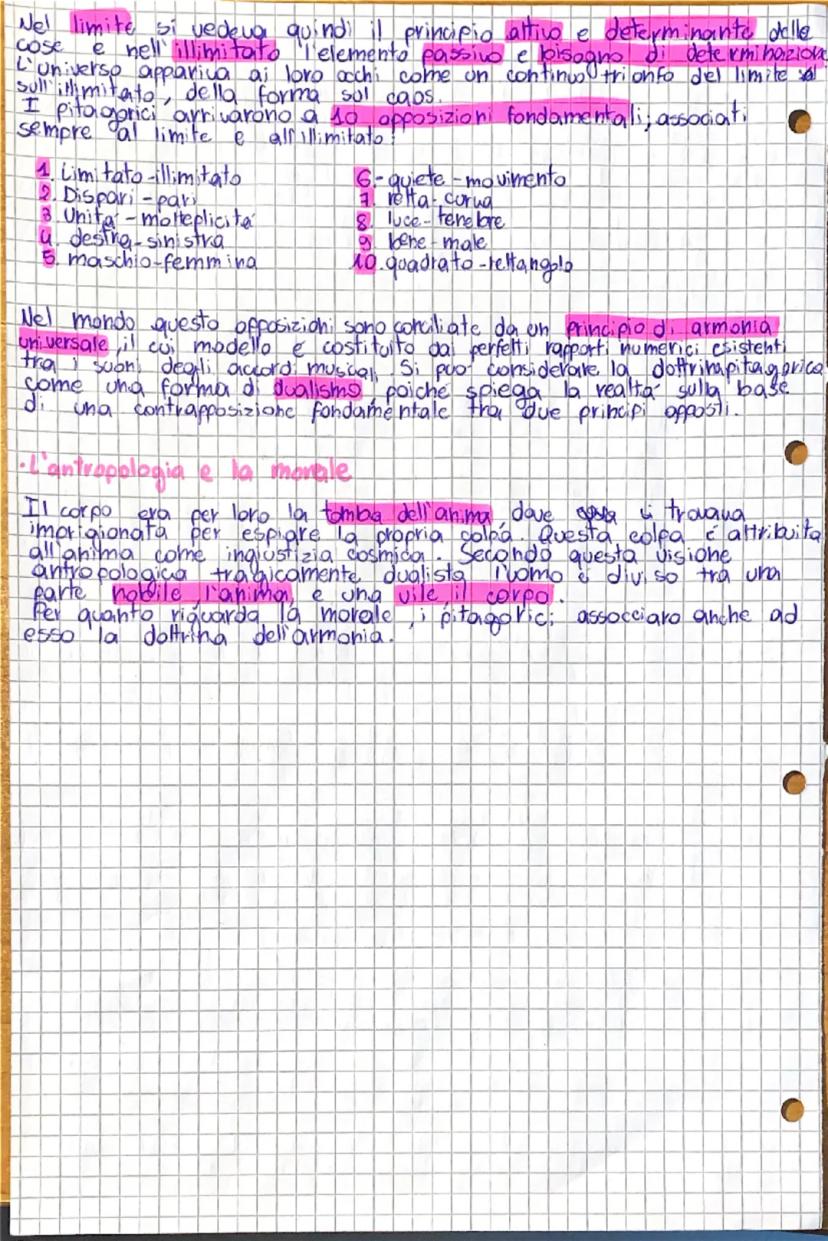 Nel limite si vedeva quindi il principio attivo e determinante delle
cose e nell'illimitato l'elemento passivo e bisogno di determinazione
L'universo appariva ai loro occhi come un continuo trionfo del limite
sull'illimitato, della forma sul caos.
I pitagorici arrivarono a 10 opposizioni fondamentali, associati
sempre al limite e all'illimitato:
1. Limitato-illimitato
2. Dispari-pari
3. Unità-molteplicità
4. destra-sinistra
5. maschio-femmina
6.-quiete-movimento
7. retta-curva
8. luce-tenebre
9. bene-male
10. quadrato-rettangolo
Nel mondo questo opposizioni sono conciliate da un principio di armonia
universale, il cui modello è costituito dai perfetti rapporti numerici esistenti
tra i suoni degli accordi musicali. Si può considerare la dottrina pitagorica
come una forma di dualismo, poichè spiega la realtà sulla base
di una contrapposizione fondamentale tra due principi opposti.
·L'antropologia e la morale
Il corpo era per loro la tomba dell'anima, dove si trovava
imprigionata per espiare la propria colpa. Questa colpa è attribuita
all'anima come ingiustizia cosmica. Secondo questa visione
antropologica tragicamente dualista l'uomo è diviso tra una
parte nobile l'anima, e una vile il corpo.
Per quanto riguarda la morale, i pitagorici assocciaro anche ad
esso la dottrina dell'armonia.